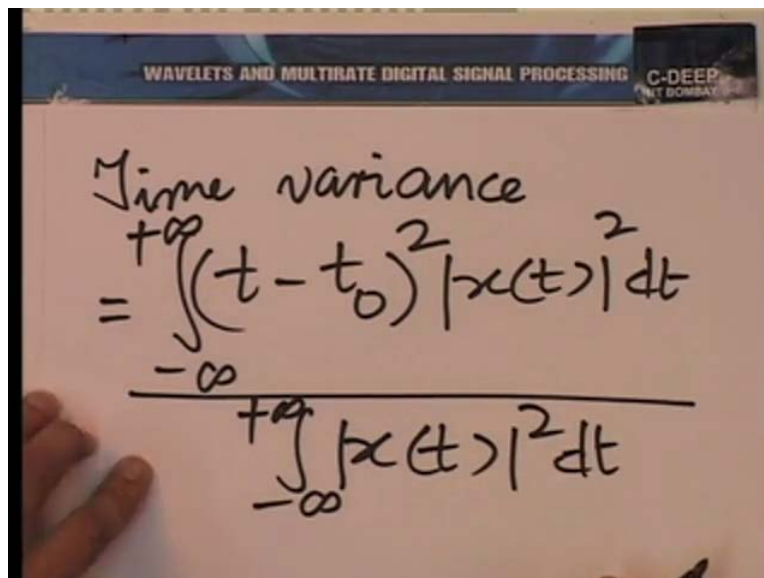 WAVELETS AND MULTIRATE DIGITAL SIGNAL PROCESSING
C-DEEP
IIT BOMBAY
Time variance
+∞
= ∫(t - t₀)²|x(t)|²dt
-∞
+∞
∫|x(t)|²dt
-∞